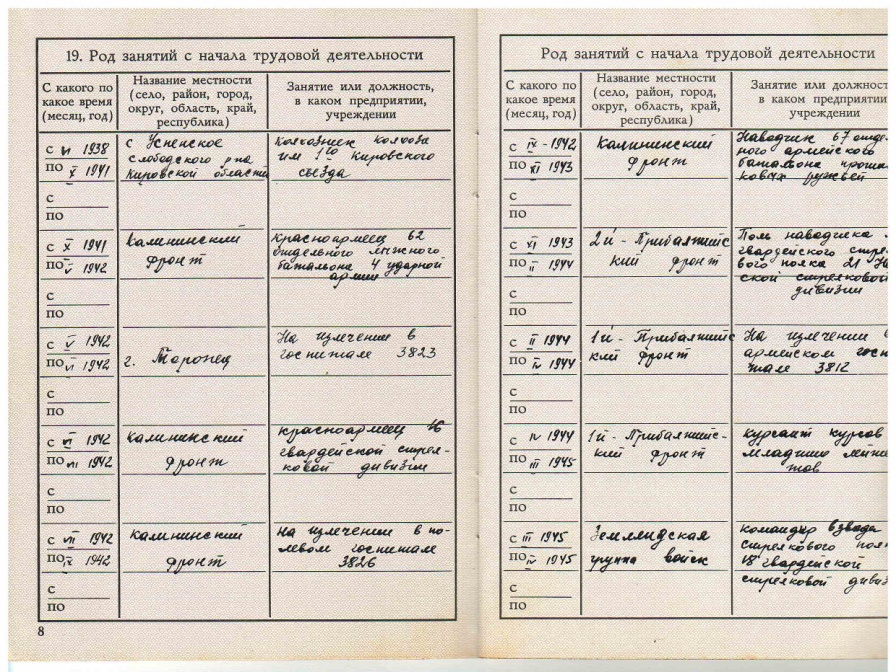 19. Род занятий с начала трудовой деятельности
С какого по
какое время
(месяц, год)
Название местности
(село, район, город,
округ, область, край,
республика)
Занятие или должность,
в каком предприятии,
учреждении
с VI 1938
по X 1941
с Успенское
Слободского р-на
Кировской области
Колхозник колхоза
им 1го Кировского
съезда
с
по
с X 1941
по V 1942
Калининский
фронт
Красноармеец 62
отдельного лыжного
батальона 4 ударной
армии
с
по
с V 1942
по VI 1942
г. Торопец
На излечении в
госпитале 3823
с
по
с VI 1942
по VII 1942
Калининский
фронт
красноармеец 16
гвардейской стрел-
ковой дивизии
с
по
с VII 1942
по IX 1942
Калининский
фронт
на излечении в по-
левом госпитале
3826
с
по
8
Род занятий с начала трудовой деятельности
С какого по
какое время
(месяц, год)
Название местности
(село, район, город,
округ, область, край,
республика)
Занятие
в каком предприятии
учреждении
с IX - 1942
по XI 1943
Калининский
фронт
Наводчик 67 отде
ного армейского
батальона
ружей
с
по
с XI 1943
по II 1944
2й - Прибалтийс
кий фронт
Пом наводчика
гвардейского стре
вого полка 21
ской стрелковой
дивизии
с
по
с II 1944
по IV 1944
1й - Прибалтийс
кий фронт
На излечении в
армейском госп
тале 3812
с
по
с IV 1944
по III 1945
1й - Прибалтийс-
кий фронт
курсант курсов
младших
тов
с
по
с III 1945
по IV 1945
Земландская
группа войск
командир взвода
стрелкового пол
18 гвардейской
стрелковой дивиз
с
по